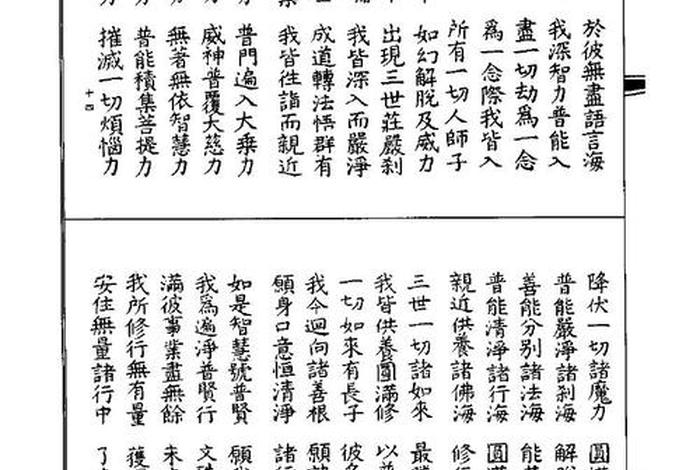 於彼無盡語言海
我深智力普能入
盡一切劫爲一念
爲一念際我皆入
所有一切人師子
如幻解脫及威力
出現三世莊嚴刹
我皆深入而嚴淨
成道轉法悟群有
我皆徃詣而親近
普門遍入大乘力
威神普覆大慈力
無著無依智慧力
普能積集菩提力
摧滅一切煩惱力
十四
降伏一切諸魔力 圓
普能嚴淨諸刹海 解
善能分別諸法海 能
普能清淨諸行海 圓
親近供養諸佛海 修
三世一切諸如來 最
我皆供養圓滿修 以
一切如來有長子 彼
我今迴向諸善根 願
願身口意恒清淨 諸
如是智慧號普賢 願
我爲遍淨普賢行 文
滿彼事業盡無餘 未
我所修行無有量 獲
安住無量諸行中 了